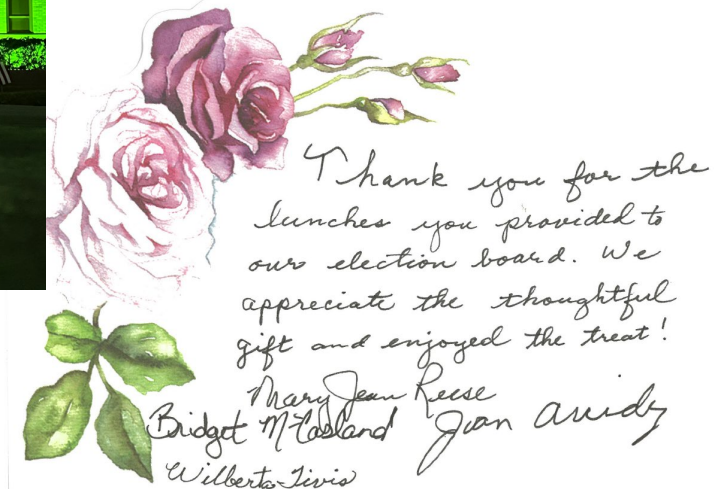 Thank you for the
lunches you provided to
our election board. We
appreciate the thoughtful
gift and enjoyed the treat!
Mary Jean Reese
Bridget McCasland Joan
Wilberta Tivis